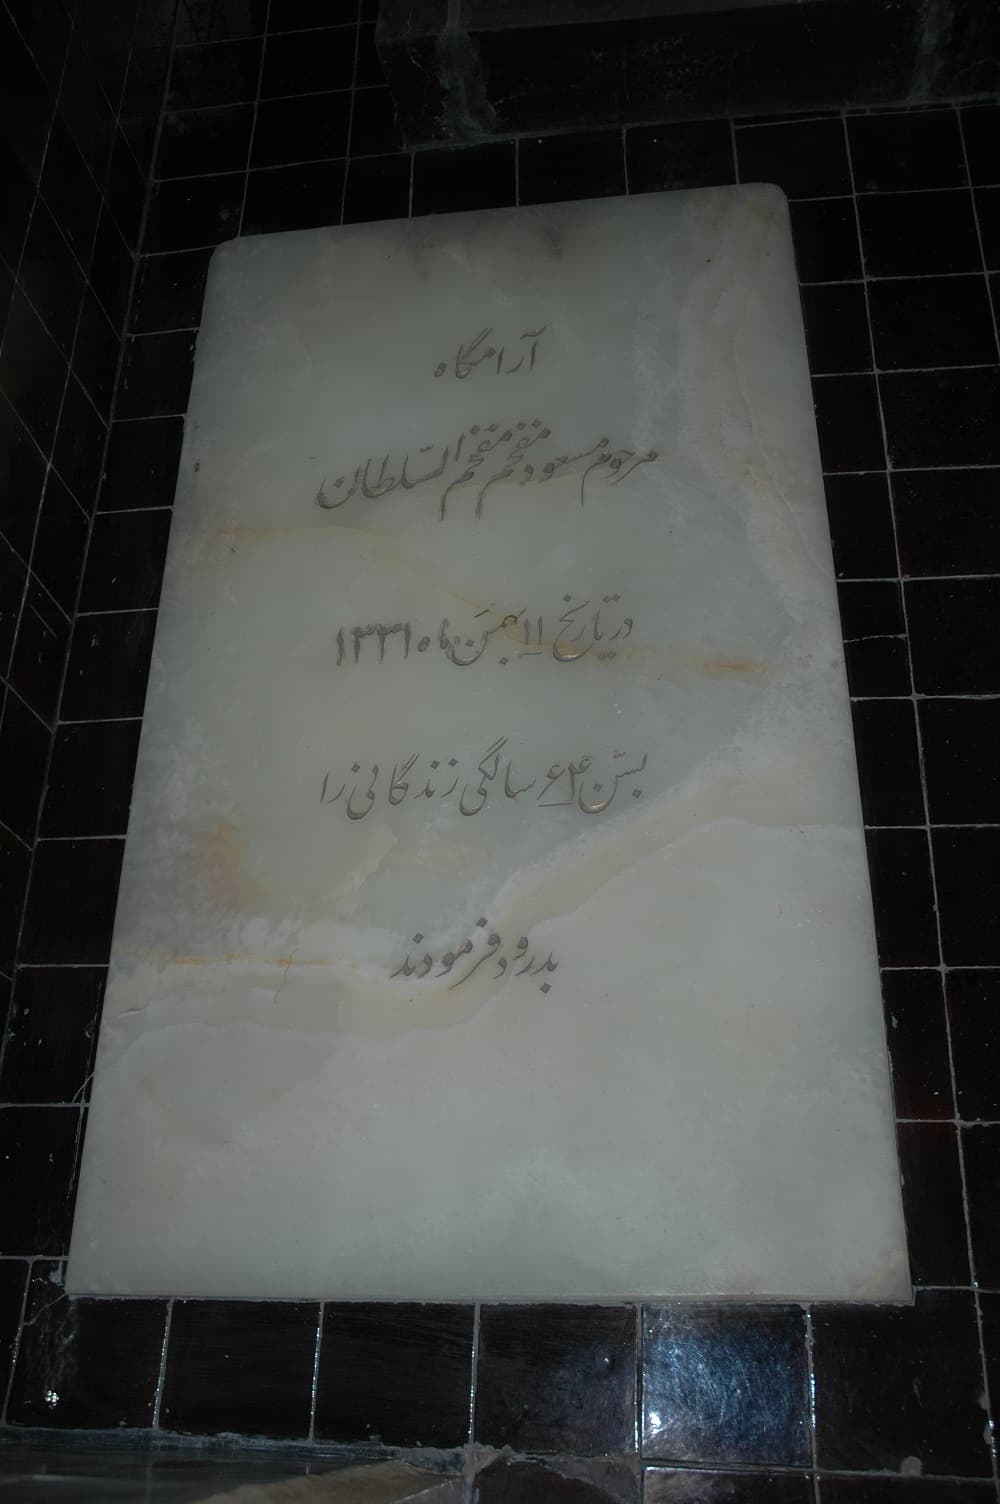 آرامگاه
مرحوم مسعود مفخم مفخم السّلطان
در تاریخ ۱۱ بهمن ماه ۱۳۳۱
بسّن ۶۴ سالگی زندگانی را
بدرود فرمودند